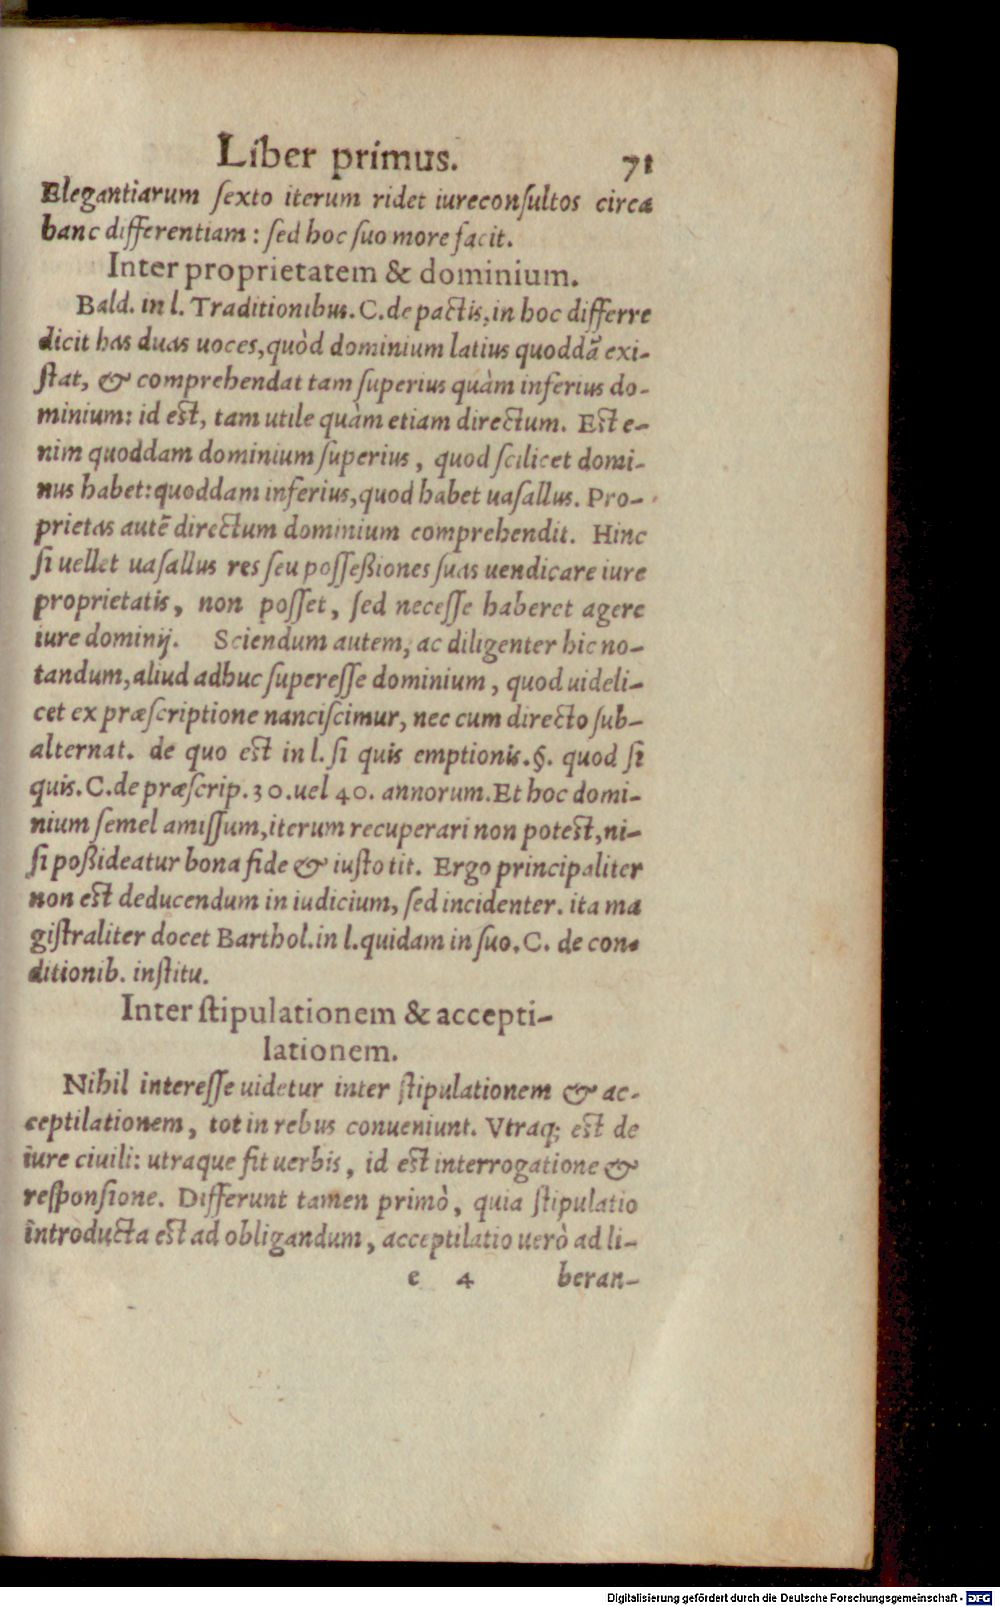 Liber primus. 71
Elegantiarum ſexto iterum ridet iureconſultos circa
hanc differentiam : ſed hoc ſuo more facit.
Inter proprietatem & dominium.
Bald. in l. Traditionibus. C. de pactis, in hoc differre
dicit has duas uoces, quòd dominium latius quoddā exi-
ſtat, & comprehendat tam ſuperius quàm inferius do-
minium: id eſt, tam utile quàm etiam directum. Eſt e-
nim quoddam dominium ſuperius, quod ſcilicet domi-
nus habet: quoddam inferius, quod habet uaſallus. Pro-
prietas autē directum dominium comprehendit. Hinc
ſi uellet uaſallus res ſeu poſſeßiones ſuas uendicare iure
proprietatis, non poſſet, ſed neceſſe haberet agere
iure dominij. Sciendum autem, ac diligenter hic no-
tandum, aliud adhuc ſupereſſe dominium, quod uideli-
cet ex præſcriptione nanciſcimur, nec cum directo ſub-
alternat. de quo eſt in l. ſi quis emptionis. §. quod ſi
quis. C. de præſcrip. 30. uel 40. annorum. Et hoc domi-
nium ſemel amiſſum, iterum recuperari non poteſt, ni-
ſi poßideatur bona fide & iuſto tit. Ergo principaliter
non eſt deducendum in iudicium, ſed incidenter. ita ma
giſtraliter docet Barthol. in l. quidam in ſuo. C. de con-
ditionib. inſtitu.
Inter ſtipulationem & accepti-
lationem.
Nihil intereſſe uidetur inter ſtipulationem & ac-
ceptilationem, tot in rebus conueniunt. Vtraq; eſt de
iure ciuili: utraque fit uerbis, id eſt interrogatione &
reſponſione. Differunt tamen primò, quia ſtipulatio
introducta eſt ad obligandum, acceptilatio uerò ad li-
e 4 beran-
Digitalisierung gefördert durch die Deutsche Forschungsgemeinschaft - DFG